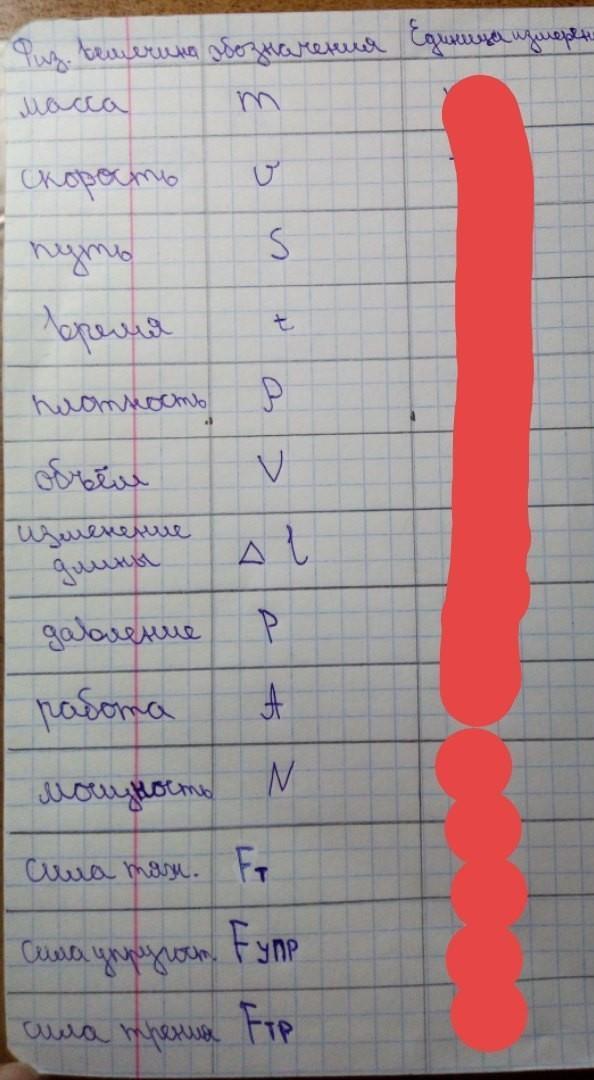 Физ. величина обозначения Единица измерен
масса m
скорость v
путь S
время t
плотность ρ
объём V
изменение
длины Δ l
давление P
работа A
мощность N
сила тяж. Fт
сила упругост. Fупр
сила трения Fтр